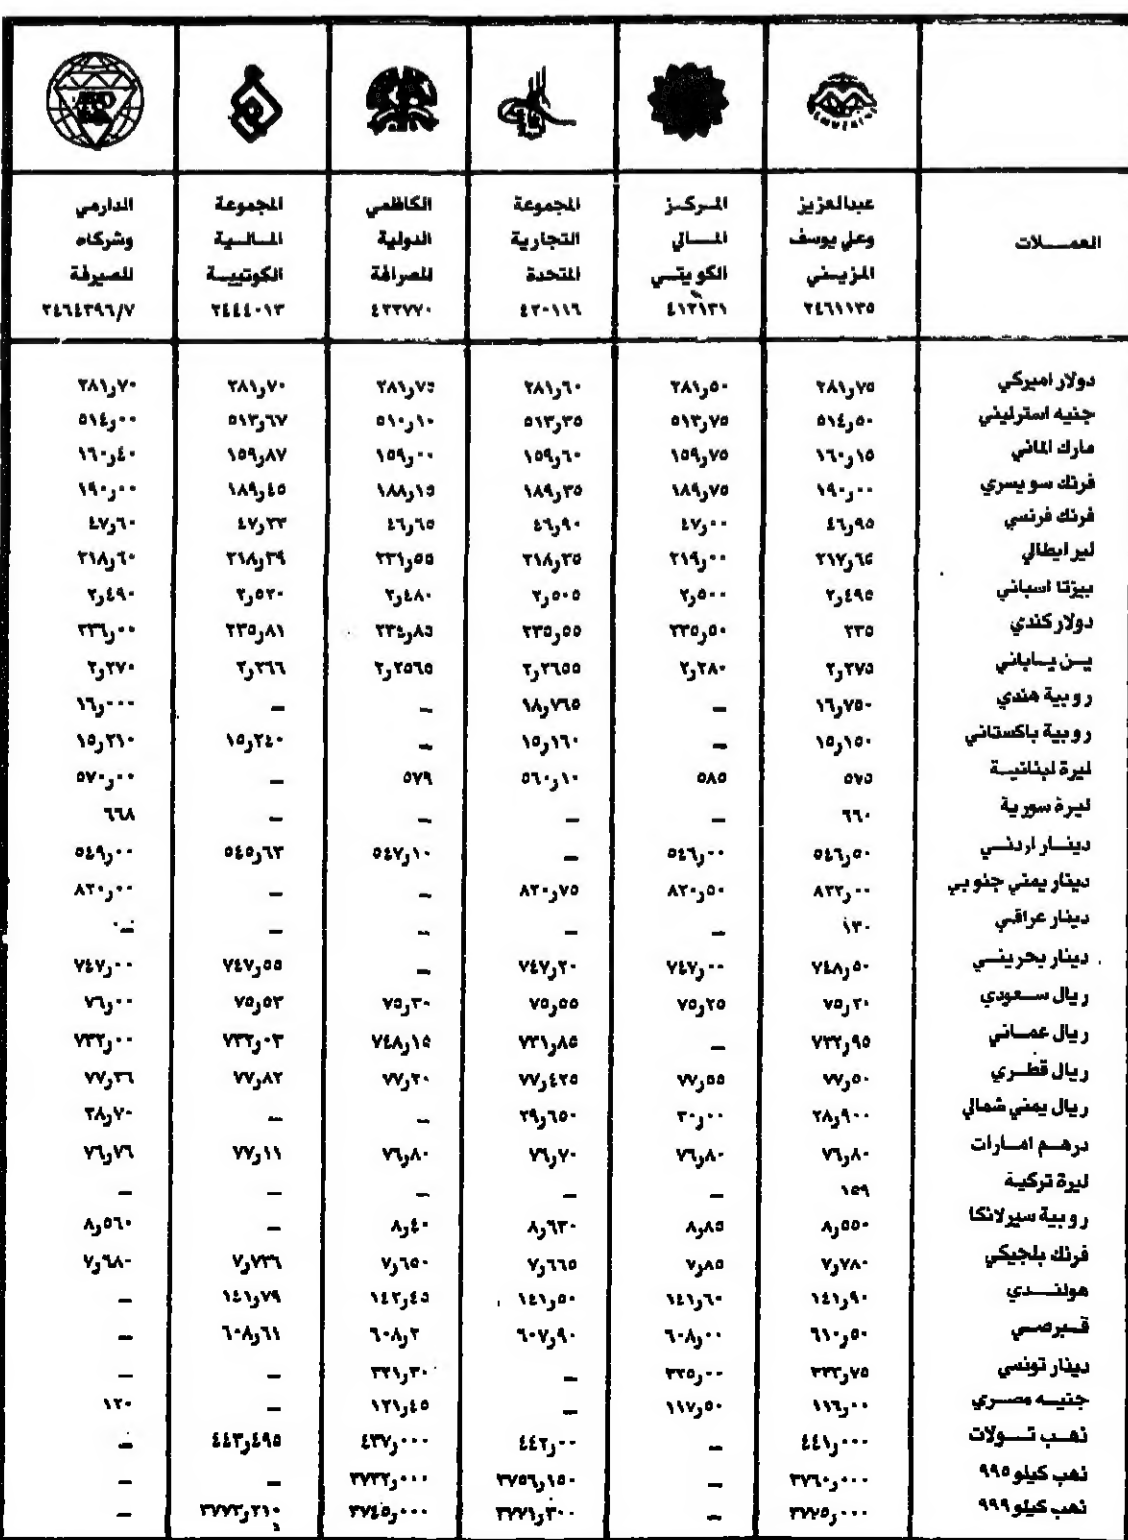 العمــلات | عبدالعزيز وعلي يوسف المزيـني ٢٤٦١١٣٥ | المـركـز المــالي الكويتــي ٤١٢١٣١ | المجموعة التجارية المتحدة ٤٢٠١١٦ | الكاظمي الدولية للصرافة ٤٢٣٧٧٠ | المجموعة المــالــية الكوتييــة ٢٤٤٤٠١٣ | الدارمي وشركاه للصيرفة ٢٤٦٤٣٩٦/٧
دولار اميركي | ٢٨١,٧٥ | ٢٨١,٥٠ | ٢٨١,٦٠ | ٢٨١,٧٥ | ٢٨١,٧٠ | ٢٨١,٧٠
جنيه استرليني | ٥١٤,٥٠ | ٥١٣,٧٥ | ٥١٣,٣٥ | ٥١٠,١٠ | ٥١٣,٦٧ | ٥١٤,٠٠
مارك الماني | ١٦٠,١٥ | ١٥٩,٧٥ | ١٥٩,٦٠ | ١٥٩,٠٠ | ١٥٩,٨٧ | ١٦٠,٤٠
فرنك سويسري | ١٩٠,٠٠ | ١٨٩,٧٥ | ١٨٩,٣٥ | ١٨٨,١٥ | ١٨٩,٤٥ | ١٩٠,٠٠
فرنك فرنسي | ٤٦,٩٥ | ٤٧,٠٠ | ٤٦,٩٠ | ٤٦,٦٥ | ٤٧,٢٣ | ٤٧,٦٠
لير ايطالي | ٢١٧,٦٥ | ٢١٩,٠٠ | ٢١٨,٣٥ | ٢٣١,٥٥ | ٢١٨,٣٩ | ٢١٨,٦٠
بيزتا اسباني | ٢,٤٩٥ | ٢,٥٠٠ | ٢,٥٠٥ | ٢,٤٨٠ | ٢,٥٢٠ | ٢,٤٩٠
دولار كندي | ٢٣٥ | ٢٣٥,٥٠ | ٢٣٥,٥٥ | ٢٣٤,٨٥ | ٢٣٥,٨١ | ٢٣٦,٠٠
يــن يــاباني | ٢,٢٧٥ | ٢,٢٨٠ | ٢,٢٦٥٥ | ٢,٢٥٦٥ | ٢,٢٦٦ | ٢,٢٧٠
روبية هندي | ١٦,٧٥٠ | – | ١٨,٧٦٥ | – | – | ١٦,٠٠٠
روبية باكستاني | ١٥,١٥٠ | – | ١٥,١٦٠ | – | ١٥,٢٤٠ | ١٥,٢١٠
ليرة لبنانيــة | ٥٧٥ | ٥٨٥ | ٥٦٠,١٠ | ٥٧٩ | – | ٥٧٠,٠٠
ليرة سورية | ٦٦٠ | – | – | – | – | ٦٦٨
دينــار اردنــي | ٥٤٦,٥٠ | ٥٤٦,٠٠ | – | ٥٤٧,١٠ | ٥٤٥,٦٣ | ٥٤٩,٠٠
دينار يمني جنوبي | ٨٢٢,٠٠ | ٨٢٠,٥٠ | ٨٢٠,٧٥ | – | – | ٨٢٠,٠٠
دينار عراقي | ١٣٠ | – | – | – | – | –
دينار بحرينــي | ٧٤٨,٥٠ | ٧٤٧,٠٠ | ٧٤٧,٢٠ | – | ٧٤٧,٥٥ | ٧٤٧,٠٠
ريال ســعودي | ٧٥,٢٠ | ٧٥,٢٥ | ٧٥,٥٥ | ٧٥,٣٠ | ٧٥,٥٣ | ٧٦,٠٠
ريال عمــاني | ٧٣٢,٩٥ | – | ٧٣١,٨٥ | ٧٤٨,١٥ | ٧٣٢,٠٣ | ٧٣٢,٠٠
ريال قطــري | ٧٧,٥٠ | ٧٧,٥٥ | ٧٧,٤٢٥ | ٧٧,٢٠ | ٧٧,٨٢ | ٧٧,٣٦
ريال يمني شمالي | ٢٨,٩٠٠ | ٣٠,٠٠ | ٢٩,٦٥٠ | – | – | ٢٨,٧٠
درهــم امــارات | ٧٦,٨٠ | ٧٦,٨٠ | ٧٦,٧٠ | ٧٦,٨٠ | ٧٧,١١ | ٧٦,٧٦
ليرة تركية | ١٥٩ | – | – | – | – | –
روبية سيرلانكا | ٨,٥٥٠ | ٨,٨٥ | ٨,٦٣٠ | ٨,٤٠ | – | ٨,٥٦٠
فرنك بلجيكي | ٧,٧٨٠ | ٧,٨٥ | ٧,٦٦٥ | ٧,٦٥٠ | ٧,٧٣٦ | ٧,٦٨٠
هولنــدي | ١٤١,٩٠ | ١٤١,٦٠ | ١٤١,٥٠ | ١٤٢,٤٥ | ١٤١,٧٩ | –
قــبرصــي | ٦١٠,٥٠ | ٦٠٨,٠٠ | ٦٠٧,٩٠ | ٦٠٨,٢ | ٦٠٨,٦١ | –
دينار تونسي | ٣٣٣,٧٥ | ٣٣٥,٠٠ | – | ٣٣١,٣٠ | – | –
جنيــه مصــري | ١١٦,٠٠ | ١١٧,٥٠ | – | ١٢١,٤٥ | – | ١٢٠
ذهــب تــولات | ٤٤١,٠٠٠ | – | ٤٤٢,٠٠ | ٤٣٧,٠٠٠ | ٤٤٣,٤٩٥ | –
ذهب كيلو ٩٩٥ | ٣٧٦٠,٠٠٠ | – | ٣٧٥٦,١٥٠ | ٣٧٣٢,٠٠٠ | – | –
ذهب كيلو ٩٩٩ | ٣٧٧٥,٠٠٠ | – | ٣٧٧١,٣٠٠ | ٣٧٤٥,٠٠٠ | ٣٧٧٣,٢١٠ | –